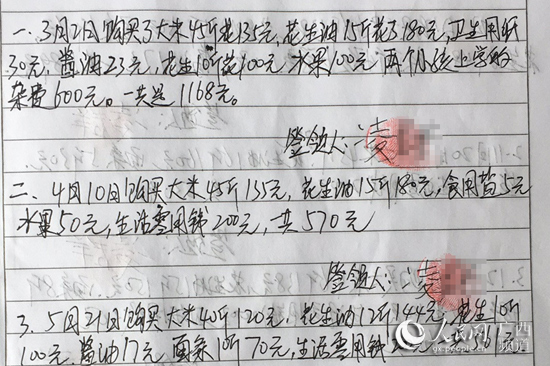 一、3月2日购买了大米45斤花135元，花生油15斤花了180元，卫生用纸
30元，酱油23元，花生10斤花100元 水果100元 两个小孩上学的
杂费600元。一共是1168元。
签领人：凌
二、4月10日购买大米45斤135元，花生油15斤180元，食用盐5元
水果50元，生活零用钱200元，一共570元
签领人：凌
3、5月21日购买大米40斤120元，花生油12斤144元，花生10斤
100元，酱油17元 面条10斤70元，生活零用钱
人民网 广西
频道